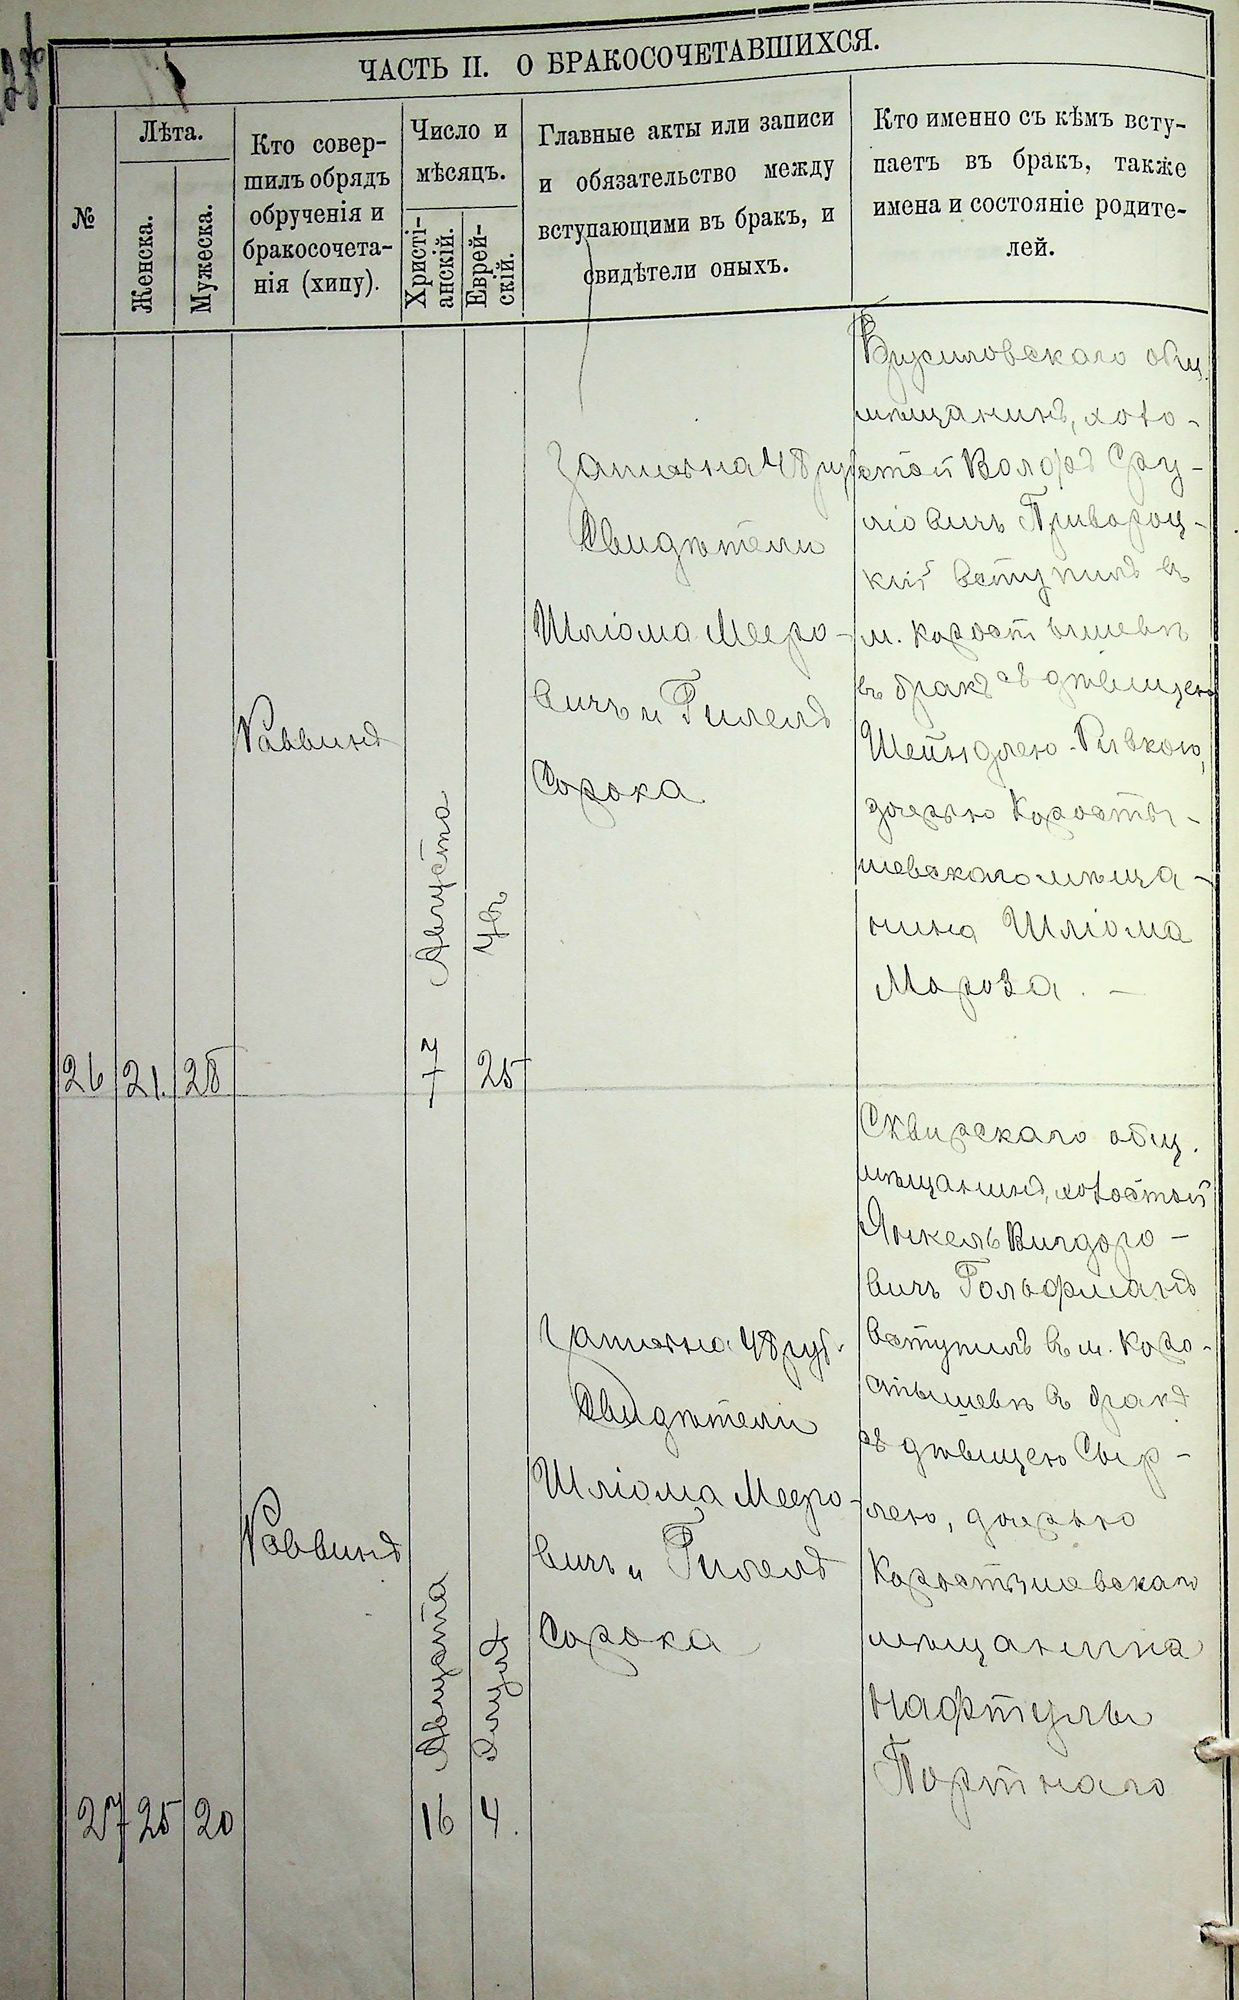 ЧАСТЬ II. О БРАКОСОЧЕТАВШИХСЯ.
№
Лѣта.
Женска.
Мужеска.
Кто совер-
шилъ обрядъ
обрученія и
бракосочета-
нія (хипу).
Число и
мѣсяцъ.
Христі-
анскій.
Еврей-
скій.
Главные акты или записи
и обязательство между
вступающими въ бракъ, и
свидѣтели оныхъ.
Кто именно съ кѣмъ всту-
паетъ въ бракъ, также
имена и состояніе родите-
лей.
26
21.
28
Раввинъ
7 Августа
25
Запись на 48 руб
Свидѣтели
Шліома Мееро-
вичъ и Гилелъ
Сорока
Брусиловскаго общ.
мѣщанинъ, холо-
стой Волфъ Сру-
ліовичъ Привороц-
кій вступилъ въ
м. Коростышевѣ
въ бракъ съ дѣвицею
Шейндлею-Ривкою,
дочерью Коросты-
шевскаго мѣща-
нина Шліома
Мороза. —
27
25
20
Раввинъ
16 Августа
4. Элулъ
Запись на 48 руб.
Свидѣтели
Шліома Мееро-
вичъ и Гилелъ
Сорока
Сквирскаго общ.
мѣщанинъ, холостой
Янкель Вигдоро-
вичъ Гольфманъ
вступилъ въ м. Коро-
стышевѣ въ бракъ
съ дѣвицею Сыр-
лею, дочерью
Коростышевскаго
мѣщанина
Нафтулы
Портнаго